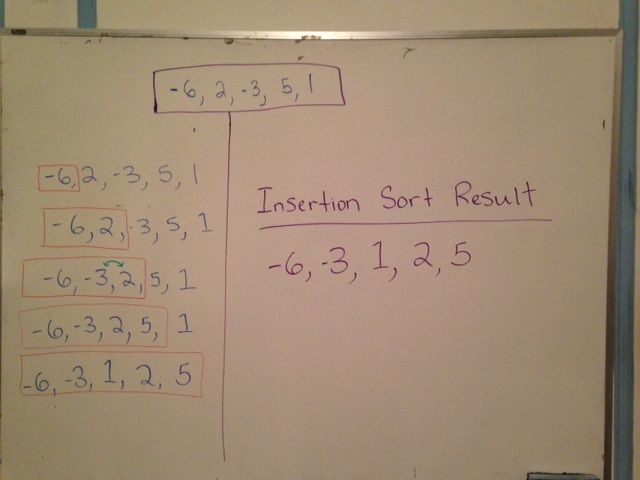 -6, 2, -3, 5, 1
-6, 2, -3, 5, 1
-6, 2, -3, 5, 1
-6, -3, 2, 5, 1
-6, -3, 2, 5, 1
-6, -3, 1, 2, 5
Insertion Sort Result
-6, -3, 1, 2, 5